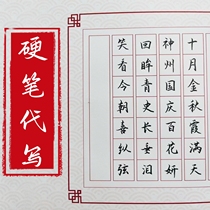 十月金秋霞满天
神州国庆百花妍
回眸青史长女泪
笑看今朝喜纵弦
硬笔代写